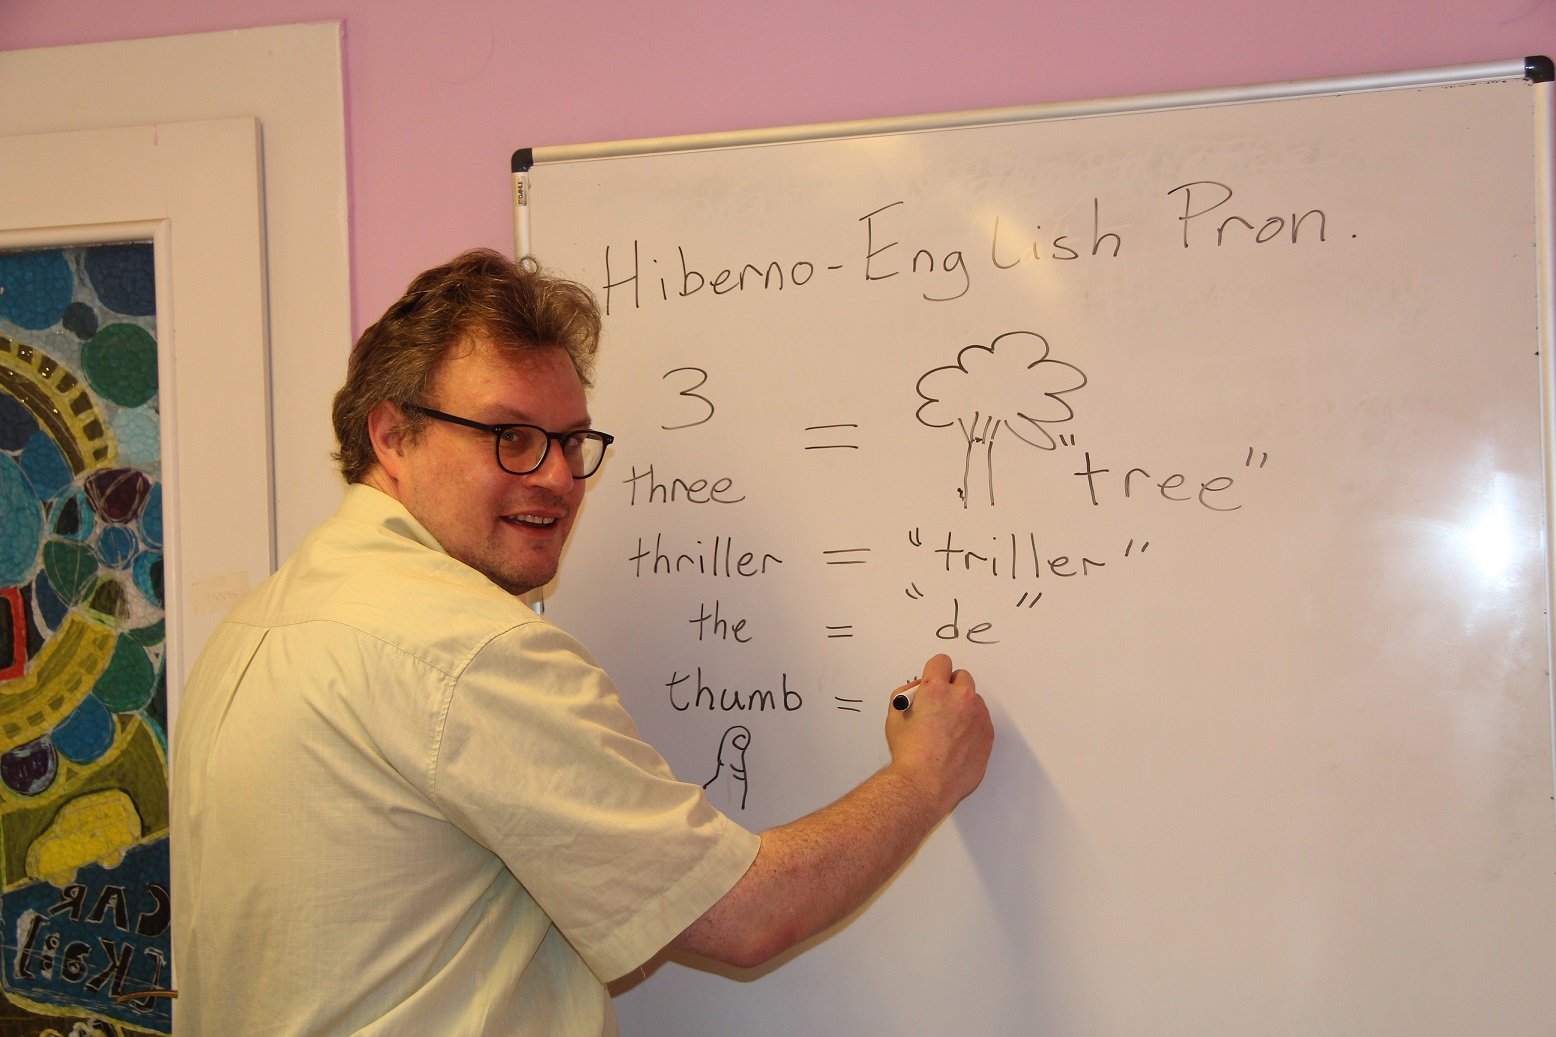 Hiberno-English Pron.
3 =
three "tree"
thriller = "triller"
the = "de"
thumb = "
CAR
[Ka:]